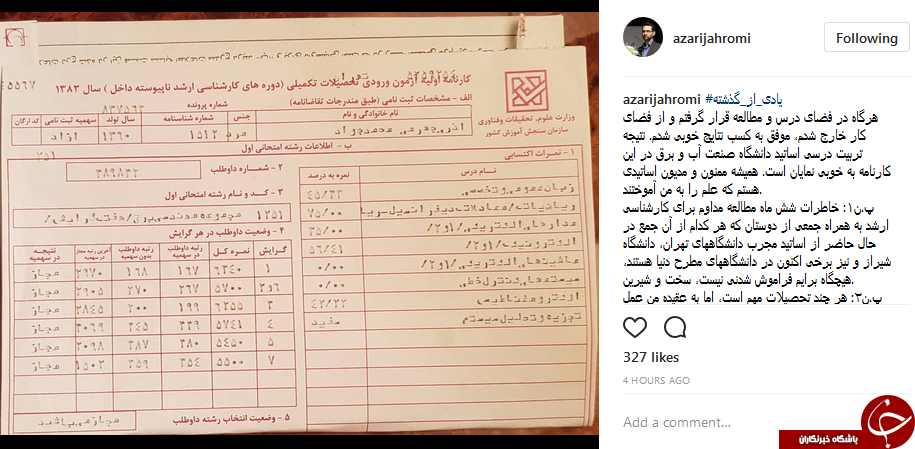 ۵۲۵۹۲۵۹
تهران
کارنامه اولیه آزمون ورودی تحصیلات تکمیلی (دوره های کارشناسی ارشد ناپیوسته داخل) سال ۱۳۸۳
وزارت علوم، تحقیقات وفناوری
سازمان سنجش آموزش کشور
الف - مشخصات ثبت نامی (طبق مندرجات تقاضانامه)
شماره پرونده
۸۳۷۵۶۳
نام خانوادگی و نام
شماره شناسنامه
جنس
سال تولد
سهمیه ثبت نامی
کد ارگان
آذری جهرمی محمدجواد
۱۵۱۲
مرد
۱۳۶۰
آزاد
ب - اطلاعات رشته امتحانی اول
۳۵۱
۱ - نمرات اکتسابی
نام درس
نمره به درصد
زبان عمومی و تخصصی
۴۵/۳۳
ریاضیات/معادلات دیفرانسیل-ریا
۷۵/۰۰
مدارهای الکتریکی/۱و۲/
۳۵/۰۰
۵۶/۴۱
ماشینهای الکتریکی/۱و۲/
۰/۰۰
سیستمهای کنترل خطی
۰/۰۰
الکترومغناطیس
۴۲/۲۲
تجزیه و تحلیل سیستم
سفید
۲ - شماره داوطلب
۳۸۹۸۳۲
۳ - کد و نام رشته امتحانی اول
۱۲۵۱
مجموعه مهندسی برق/هفت گرایش/
۴ - وضعیت داوطلب در هر گرایش
گرایش
نمره کل
رتبه داوطلب در سهمیه
رتبه داوطلب بدون سهمیه
آخرین رتبه مجاز در سهمیه
نتیجه در سهمیه
۱ ۶۳۴۰ ۱۶۷ ۱۶۸ ۲۹۷۰ مجاز
۲و۶ ۵۷۰۰ ۲۶۷ ۲۷۰ ۲۹۰۵ مجاز
۳ ۶۲۵۵ ۱۹۹ ۲۰۰ ۲۸۴۵ مجاز
۴ ۵۷۴۱ ۳۳۹ ۳۴۵ ۳۰۶۹ مجاز
۵ ۵۴۵۰ ۳۸۰ ۳۸۷ ۲۰۹۸ مجاز
۷ ۵۵۰۰ ۳۵۴ ۳۵۹ ۱۵۰۲ مجاز
۵ - وضعیت انتخاب رشته داوطلب
مجاز می باشید
azarijahromi
Following
azarijahromi #یادی_از_گذشته
هرگاه در فضای درس و مطالعه قرار گرفتم و از فضای
کار خارج شدم، موفق به کسب نتایج خوبی شدم. نتیجه
تربیت درسی اساتید دانشگاه صنعت آب و برق در این
کارنامه به خوبی نمایان است. همیشه ممنون و مدیون اساتیدی
هستم که علم را به من آموختند.
پ.ن۱: خاطرات شش ماه مطالعه مداوم برای کارشناسی
ارشد به همراه جمعی از دوستان که هر کدام از آن جمع در
حال حاضر از اساتید مجرب دانشگاههای تهران، دانشگاه
شیراز و نیز برخی اکنون در دانشگاههای مطرح دنیا هستند،
هیچگاه برایم فراموش شدنی نیست، سخت و شیرین.
پ.ن۲: هر چند تحصیلات مهم است، اما به عقیده من عمل
327 likes
4 HOURS AGO
Add a comment...
باشگاه خبرنگاران